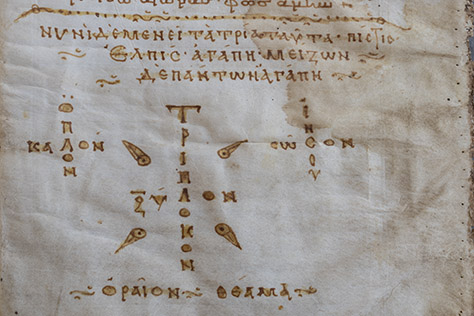 ΝΥΝΙ ΔΕ ΜΕΝΕΙ ΤΑ ΤΡΙΑ ΤΑΥΤΑ· ΠΙΣΤΙΣ
ΕΛΠΙΣ ἀΓΑΠΗ ΜΕΙΖΩΝ
ΔΕ ΠΑΝΤΩΝ ἡ ΑΓΑΠΗ
ΟΠΛΟΝ
ΚΑΛΟΝ
ΤΡΙΠΛΟΚΟΝ
ΞΥΛΟΝ
ΙΗϹΟΥ
ϹΩϹΟΝ
ΟΡΑΙΟΝ ΘΕΑΜΑ